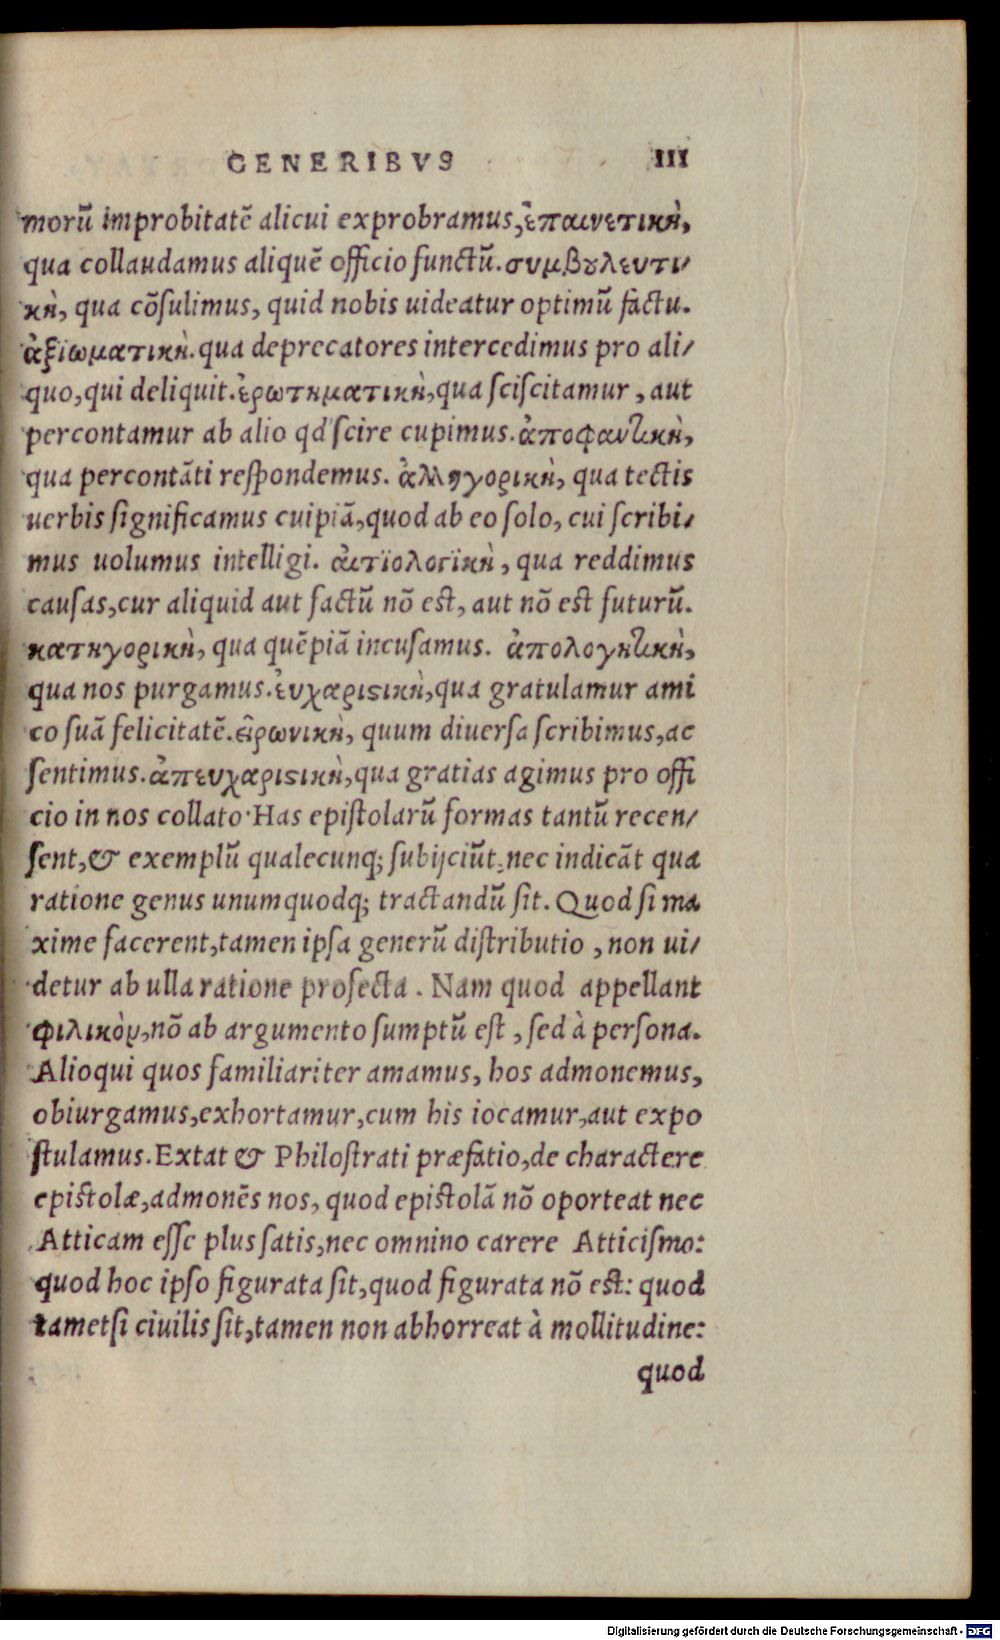 GENERIBVS III
morū improbitatē alicui exprobramus, ἐπαινετικὴ,
qua collaudamus aliquē officio functū. συμβȣλευτι⸗
κὴ, qua cōsulimus, quid nobis uideatur optimū factu.
ἀξιωματικὴ. qua deprecatores intercedimus pro ali⸗
quo, qui deliquit. ἐρωτηματικὴ, qua sciscitamur, aut
percontamur ab alio qđ scire cupimus. ἀποφαντικὴ,
qua percontāti respondemus. ἀλληγορικὴ, qua tectis
uerbis significamus cuipiā, quod ab eo solo, cui scribi⸗
mus uolumus intelligi. ἀιτϊολογϊκὴ, qua reddimus
causas, cur aliquid aut factū nō est, aut nō est futurū.
κατηγορικὴ, qua quēpiā incusamus. ἀπολογητικὴ,
qua nos purgamus. ἐυχαριϛικὴ, qua gratulamur ami
co suā felicitatē. εἰρωνικὴ, quum diuersa scribimus, ac
sentimus. ἀπευχαριϛικὴ, qua gratias agimus pro offi
cio in nos collato. Has epistolarū formas tantū recen⸗
sent, & exemplū qualecunq; subijciūt, nec indicāt qua
ratione genus unumquodq; tractandū sit. Quod si ma
xime facerent, tamen ipsa generū distributio, non ui⸗
detur ab ulla ratione profecta. Nam quod appellant
φιλικὸν, nō ab argumento sumptū est, sed à persona.
Alioqui quos familiariter amamus, hos admonemus,
obiurgamus, exhortamur, cum his iocamur, aut expo
stulamus. Extat & Philostrati præfatio, de charactere
epistolæ, admonēs nos, quod epistolā nō oporteat nec
Atticam esse plus satis, nec omnino carere Atticismo:
quod hoc ipso figurata sit, quod figurata nō est: quod
tametsi ciuilis sit, tamen non abhorreat à mollitudine:
quod
Digitalisierung gefördert durch die Deutsche Forschungsgemeinschaft - DFG